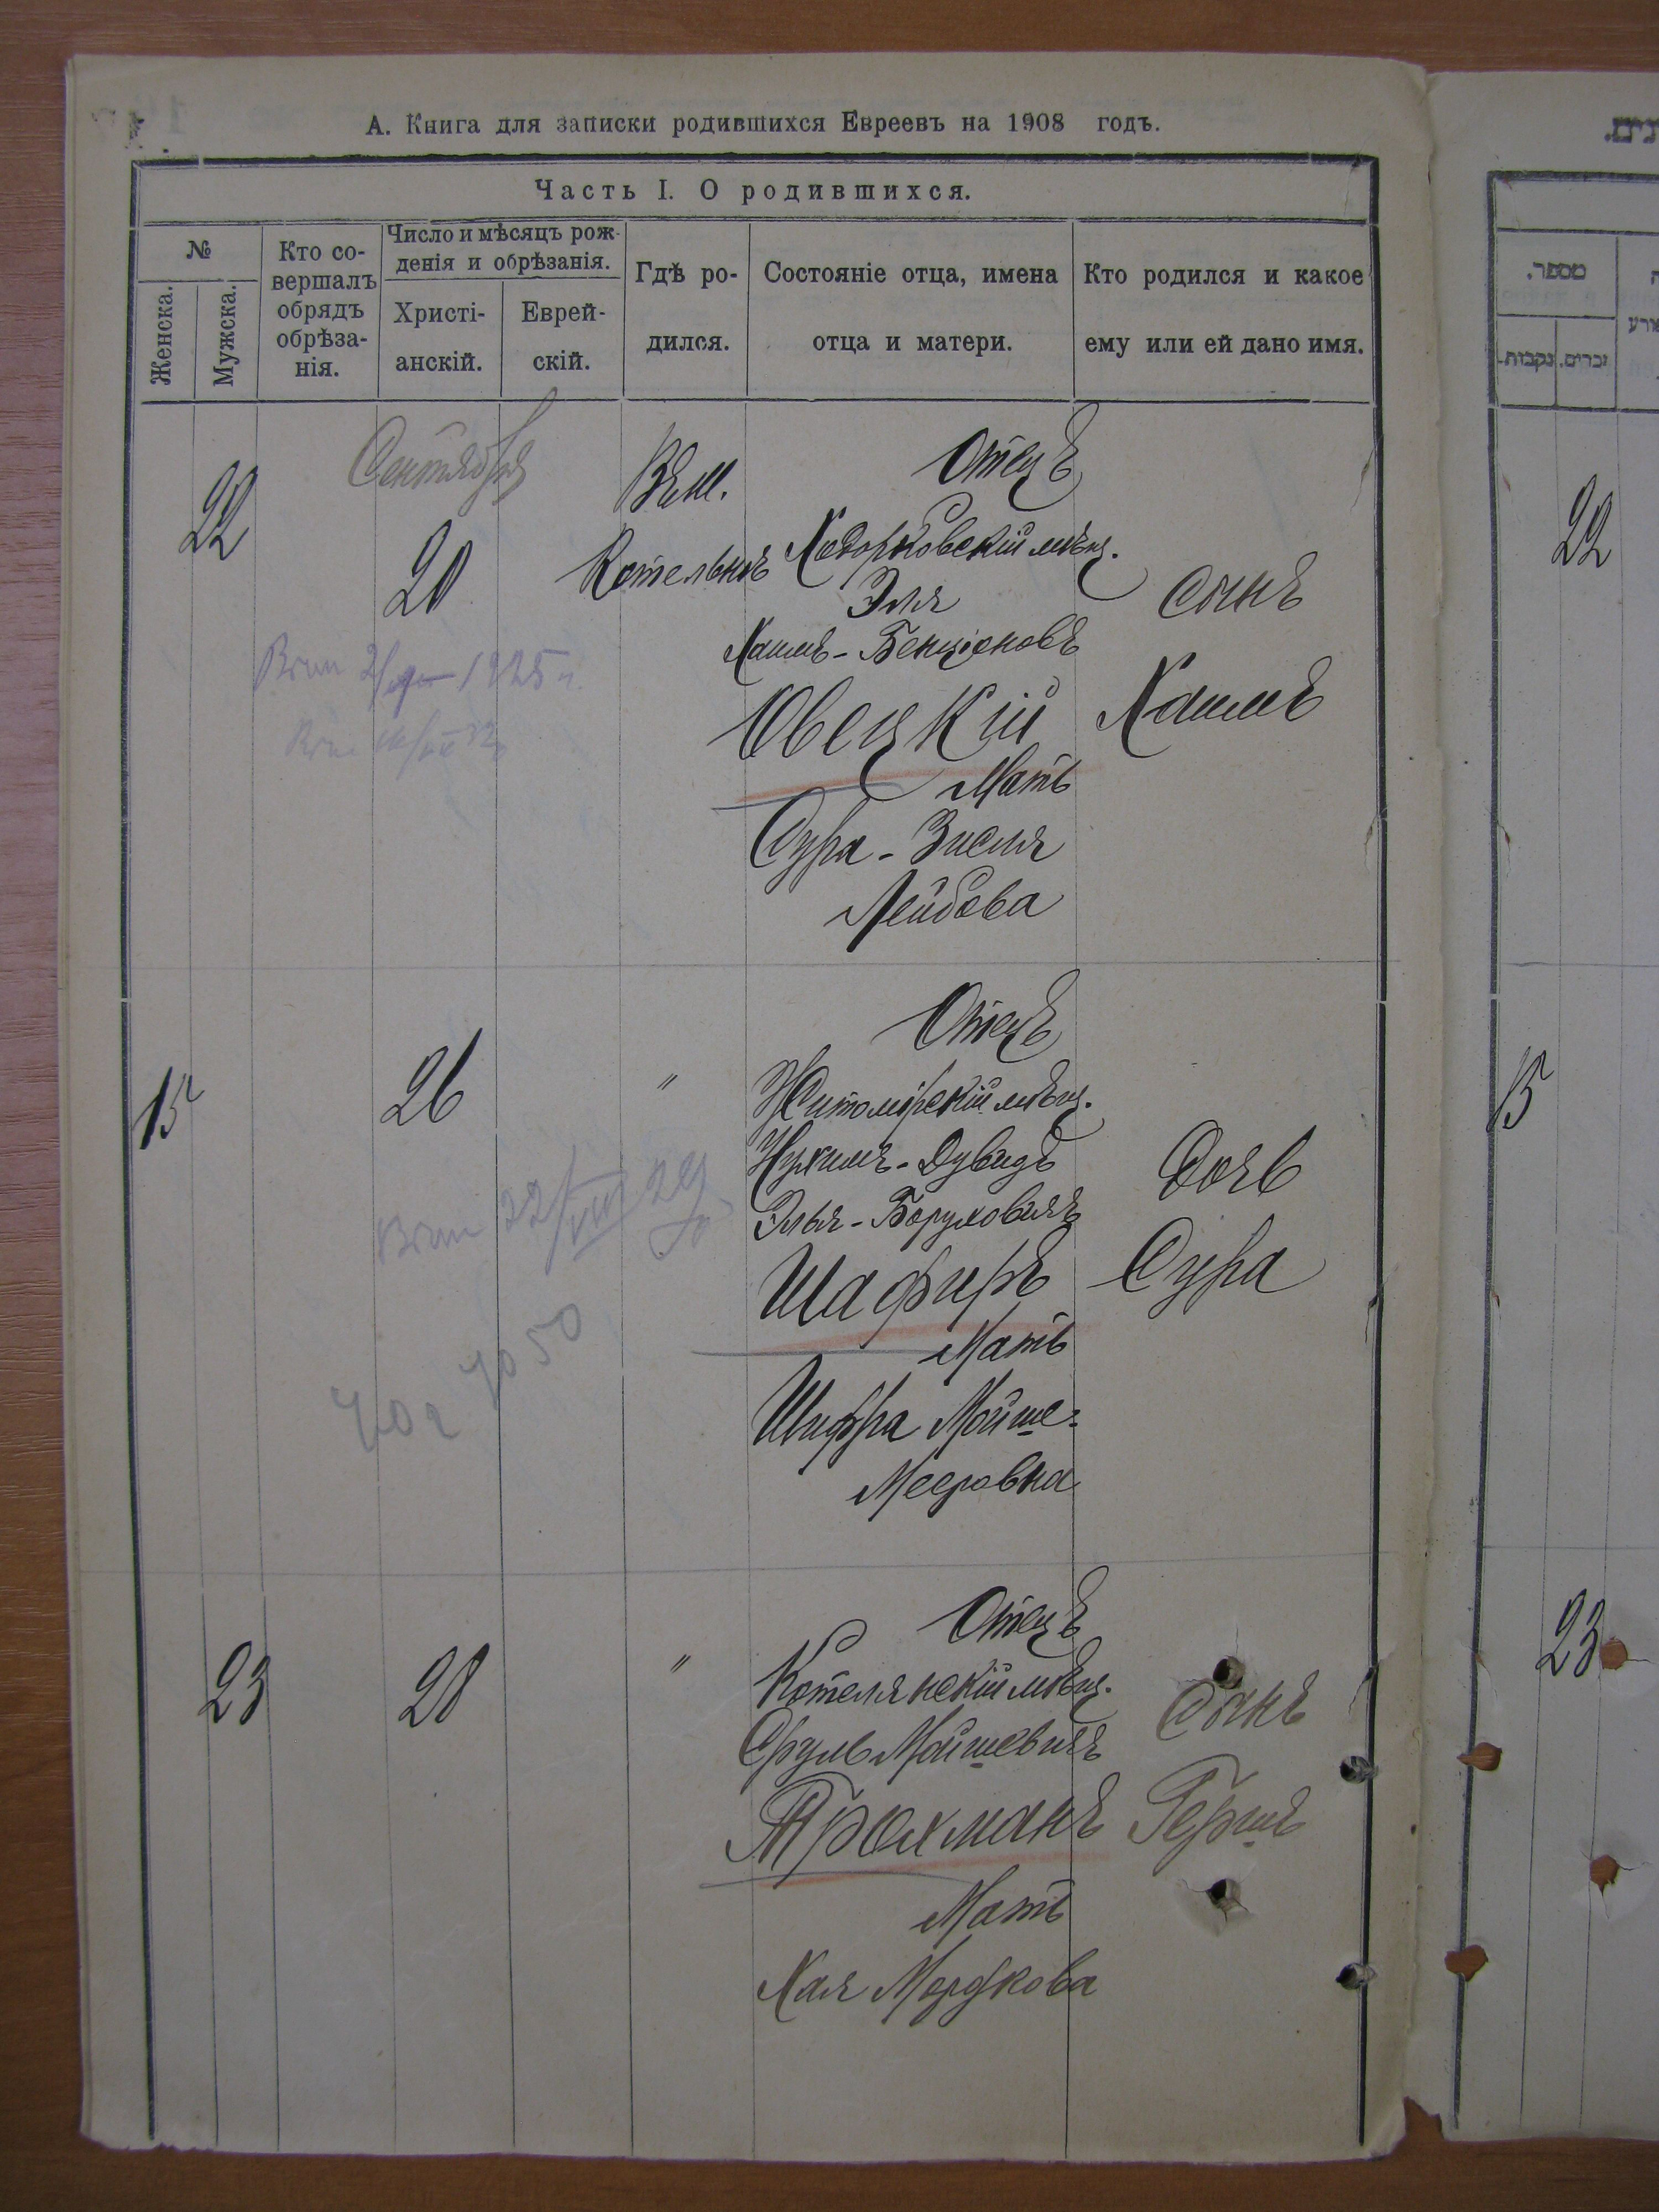 А. Книга для записки родившихся Евреевъ на 1908 годъ.
Часть I. О родившихся.
№
Женска.
Мужска.
Кто со-
вершалъ
обрядъ
обрѣза-
нія.
Число и мѣсяцъ рож-
денія и обрѣзанія.
Христі-
анскій.
Еврей-
скій.
Гдѣ ро-
дился.
Состояніе отца, имена
отца и матери.
Кто родился и какое
ему или ей дано имя.
22
Сентября
20
Въ м.
Котельнѣ
Отецъ
Ходорковскій мѣщ.
Эля
Хаимъ-Бенціоновъ
Овецкій
Мать
Сура-Зисля
Лейбова
Сынъ
Хаимъ
1925 г.
15
26
"
Отецъ
Житомірскій мѣщ.
Нухимъ-Дувидъ
Элья-Боруховичъ
Шафиръ
Мать
Шифра Мойше-
Мееровна
Дочь
Сура
22/VIII 29
23
28
"
Отецъ
Котелянскій мѣщ.
Сруль Мойшевичъ
Трохманъ
Мать
Хая Мордкова
Сынъ
Гершъ
מספר.
זכרים.
נקבות.
22
15
23